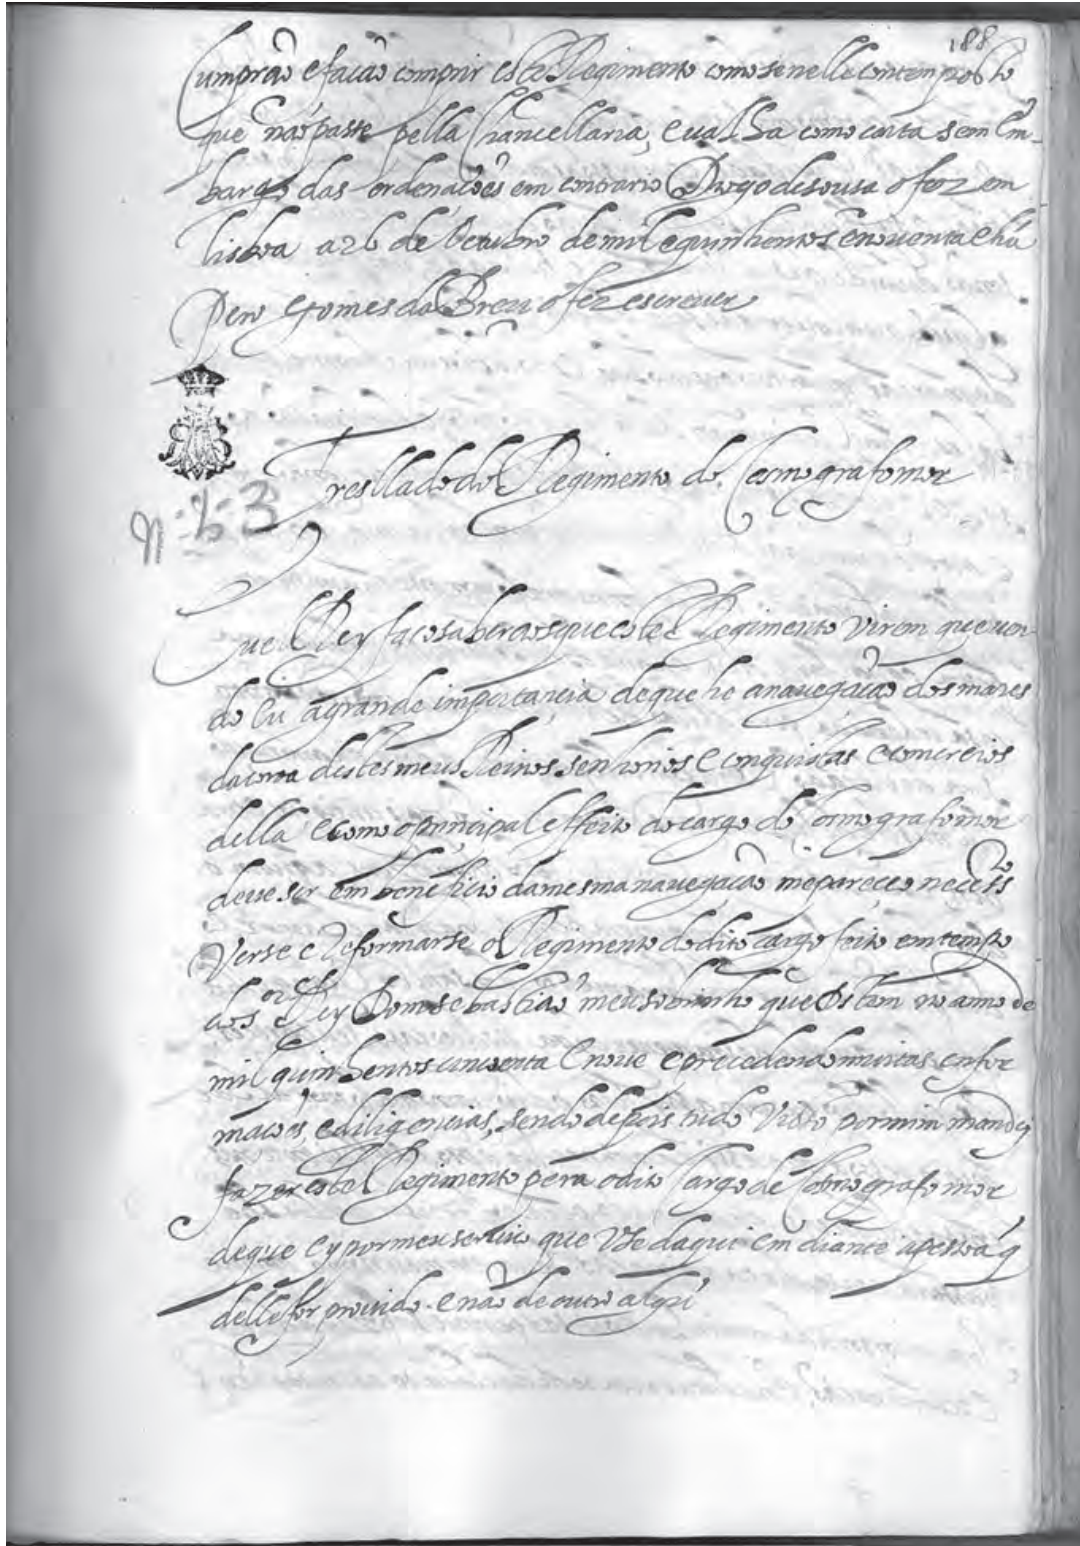 188
Cumprão e fação comprir este Regimento como se nelle contem posto
que não passe pella Chancellaria, e valha como carta sem Em-
bargo das ordenações em contrario Diogo de sousa o fez em
lisboa a 26 de Octubro de mil e quinhentos e noventa e hũ
Pero Gomes da Breu o fez escrever
N-2-3
Treslado do Regimento do Cosmografo mor
Eu el Rey faço saber aos que este Regimento virem que ven-
do Eu a grande importancia de que he a navegação dos mares
da coroa destes meus Reinos, senhorios e conquistas e comercios
della e como o principal effeito do cargo do Cosmografo mor
deve ser em beneficio da mesma navegação me pareceo necess.to
Verse e Reformarse o Regimento do dito cargo feito em tempo
do s.or el Rey Dom sebastião meu sobrinho que Ds tem no anno de
mil quinhentos cincoenta e nove e precedendo muitas enfor
mações, e diligencias, sendo depois tudo Visto por mim mandei
fazer este Regimento pera o dito Cargo de Cosmografo mor
de que ey por meu serviço que Use daqui em diante a pessoa q̃
delle for provido. e não de outro algũ